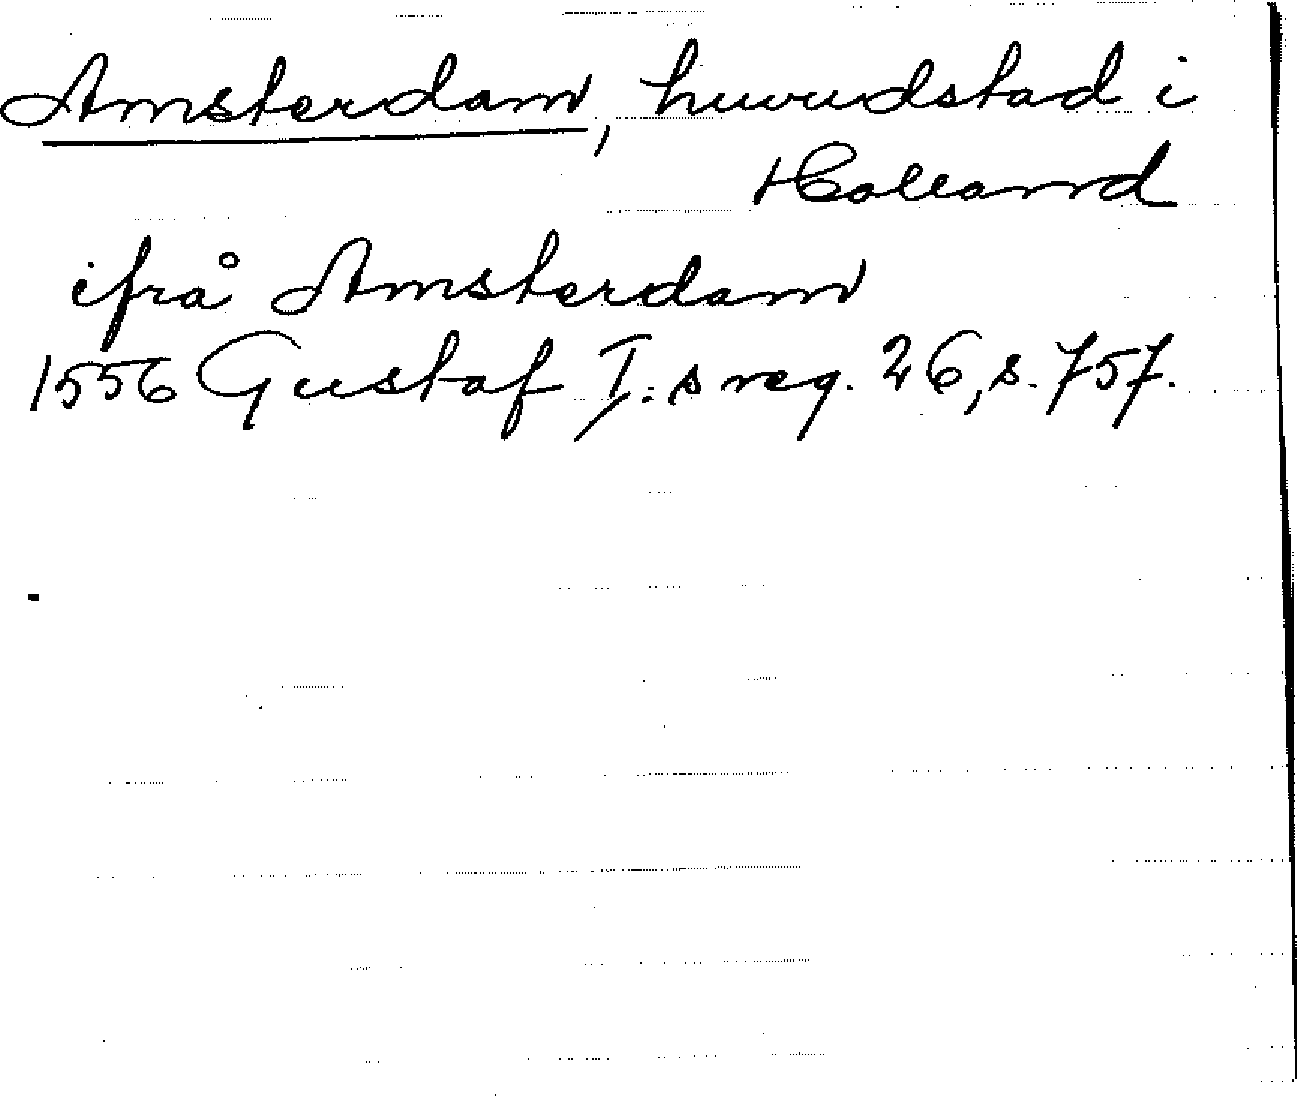 Amsterdam, huvudstad i
Holland
ifrå Amsterdam
1556 Gustaf I:s reg. 26, s. 757.